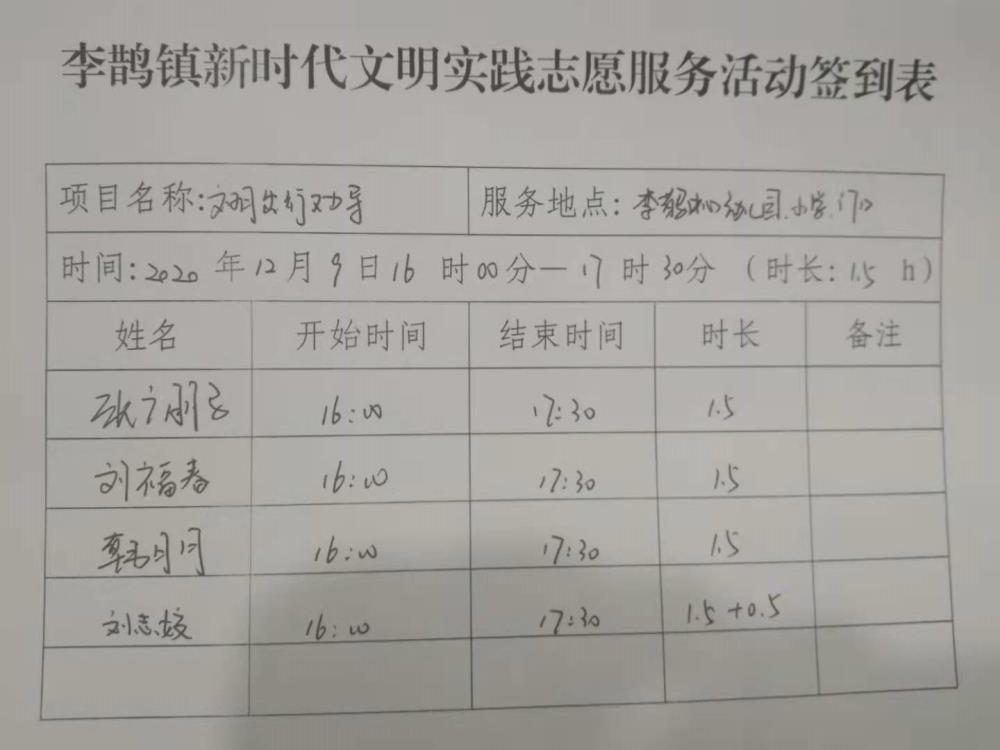 李鹊镇新时代文明实践志愿服务活动签到表
项目名称:文明出行劝导 服务地点:李鹊初幼儿园.小学门口
时间:2020 年 12 月 9 日 16 时 00 分— 17 时 30 分 (时长: 1.5 h)
姓名 开始时间 结束时间 时长 备注
16:00 17:30 1.5
刘福春 16:00 17:30 1.5
韩月月 16:00 17:30 1.5
刘志姣 16:00 17:30 1.5+0.5